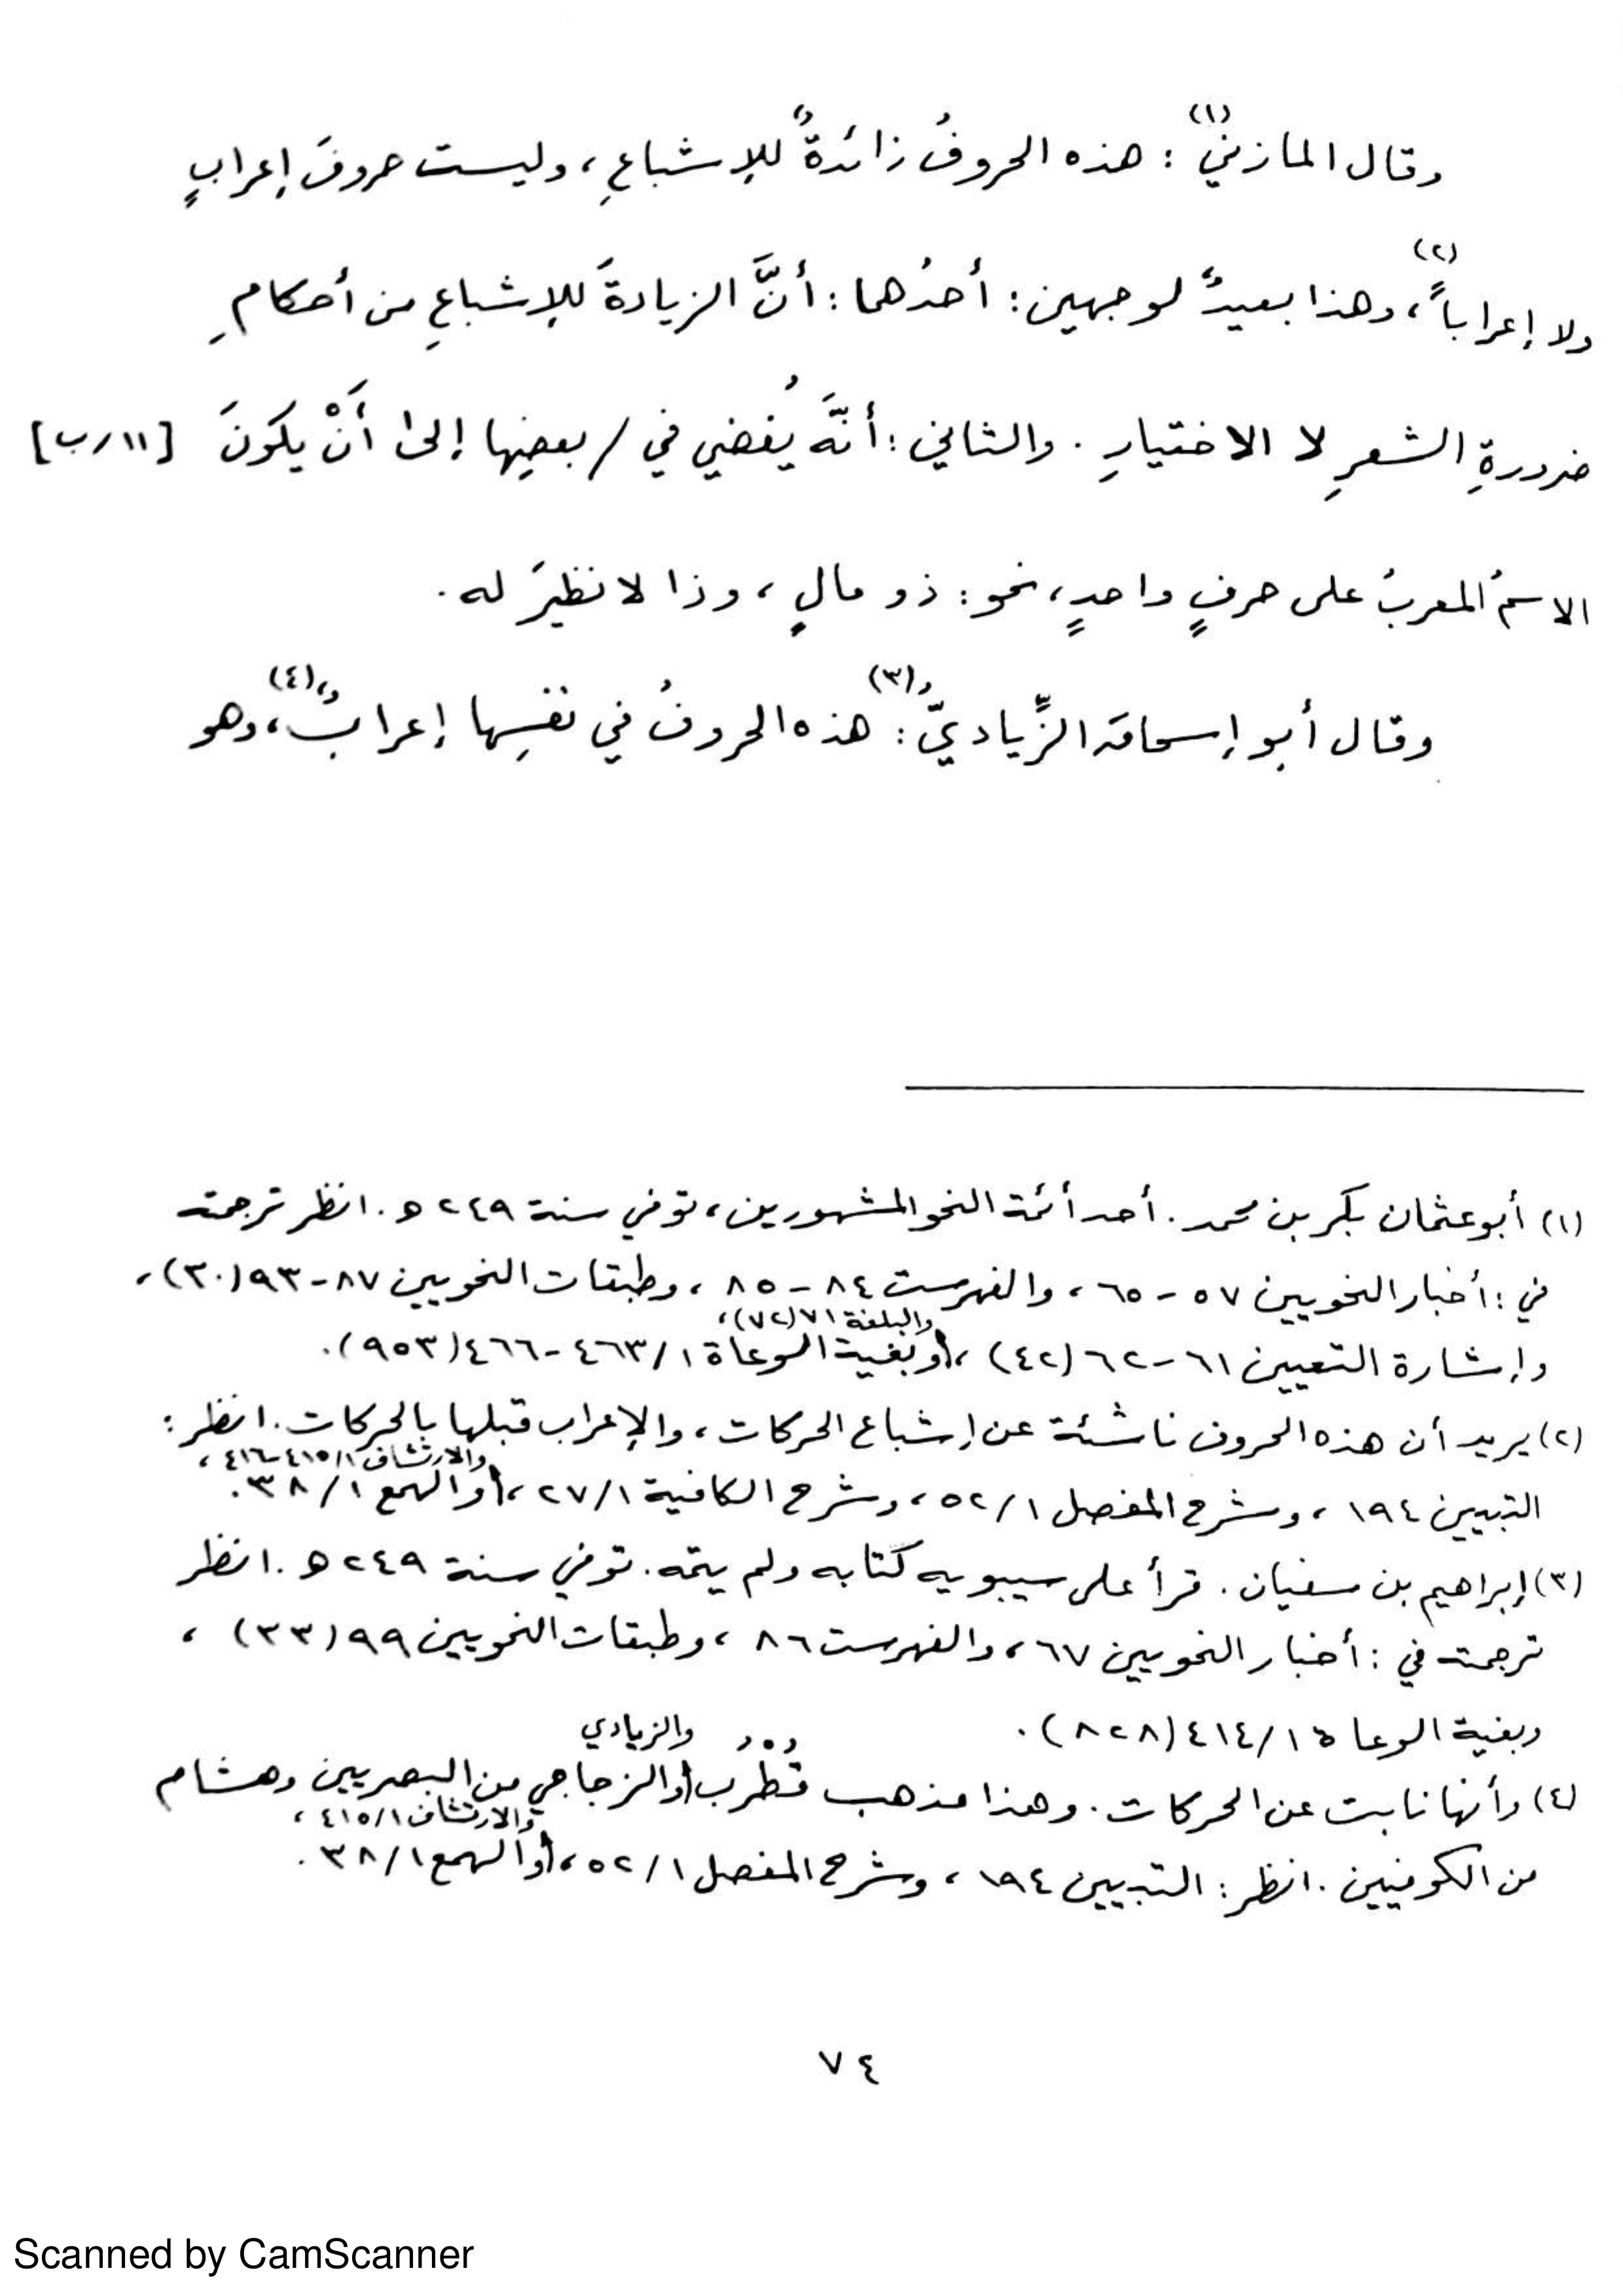 وقال المازنيُّ(١) : هذه الحروفُ زائدةٌ للإشباعِ ، وليست حروفَ إعرابٍ
ولا إعراباً(٢) ، وهذا بعيدٌ لوجهين : أحدُهما : أنَّ الزيادةَ للإشباعِ من أحكامِ
ضرورةِ الشعرِ لا الاختيارِ . والثاني : أنَّه يُفضي في / بعضِها إلى أَنْ يكونَ [١١/ب]
الاسمُ المعربُ على حرفٍ واحدٍ ، نحو : ذو مالٍ ، وذا لا نظيرَ له .
وقال أبو إسحاق الزِّياديّ(٣) : هذه الحروفُ في نفسِها إعرابٌ(٤) ، وهو
(١) أبو عثمان بكر بن محمد . أحد أئمة النحو المشهورين ، توفي سنة ٢٤٩ ه . انظر ترجمته
في : أخبار النحويين ٥٧ - ٦٥ ، والفهرست ٨٤ - ٨٥ ، وطبقات النحويين ٨٧ - ٩٣ (٣٠) ،
والبلغة ٧١ (٧٢) ،
وإشارة التعيين ٦١ - ٦٢ (٤٢) ، وبغية الوعاة ١/ ٤٦٣ - ٤٦٦ (٩٥٣) .
(٢) يريد أن هذه الحروف ناشئة عن إشباع الحركات ، والإعراب قبلها بالحركات . انظر :
والارتشاف ١/ ٤١٥ - ٤١٦ ،
التبيين ١٩٤ ، وشرح المفصل ١/ ٥٢ ، وشرح الكافية ١/ ٢٧ ، والهمع ١/ ٣٨ .
(٣) إبراهيم بن سفيان . قرأ على سيبويه كتابه ولم يتمه . توفي سنة ٢٤٩ ه . انظر
ترجمته في : أخبار النحويين ٦٧ ، والفهرست ٨٦ ، وطبقات النحويين ٩٩ (٣٣) ،
وبغية الوعاة ١/ ٤١٤ (٨٢٨) .
والزيادي
(٤) وأنها نابت عن الحركات . وهذا مذهب قُطْرُب والزجاجي من البصريين وهشام
والارتشاف ١/ ٤١٥ ،
من الكوفيين . انظر : التبيين ١٩٤ ، وشرح المفصل ١/ ٥٢ ، والهمع ١/ ٣٨ .
٧٤
Scanned by CamScanner